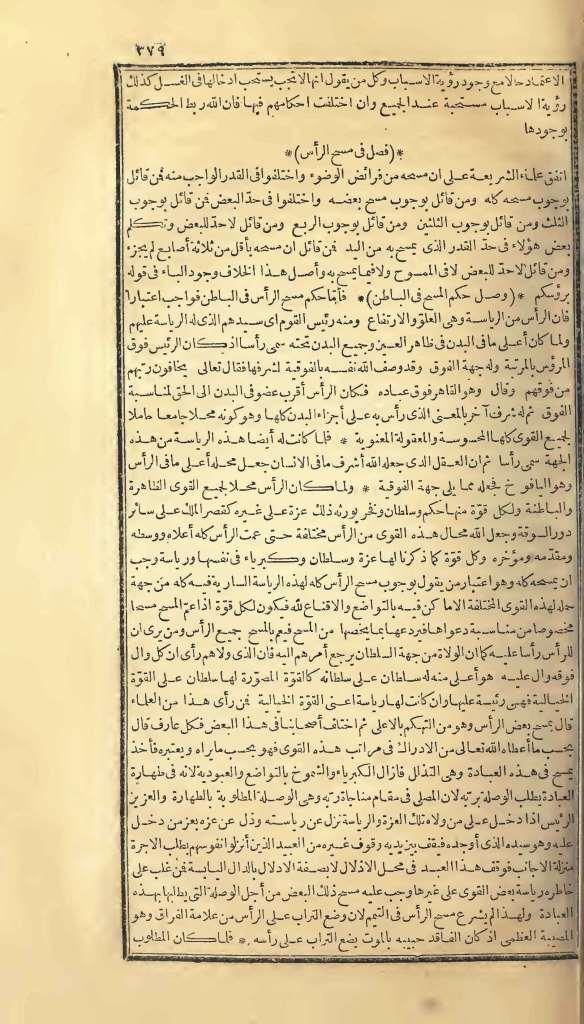 ٣٧٩
الاعتماد حالا مع وجود رؤية الاسباب وكل من يقول انها لا تجب يستحب ادخالها فى الغسل كذلك
رؤية الاسباب مستحبة عند الجميع وان اختلفت احكامهم فيها فان الله ربط الحكمة
بوجودها
*(فصل فى مسح الرأس)*
اتفق علماء الشريعة على ان مسحه من فرائض الوضوء واختلفوا فى القدر الواجب منه فمن قائل
بوجوب مسحه كله ومن قائل بوجوب مسح بعضه واختلفوا فى حد البعض فمن قائل بوجوب
الثلث ومن قائل بوجوب الثلثين ومن قائل بوجوب الربع ومن قائل لاحد للبعض وتكلم
بعض هؤلاء فى حد القدر الذى يمسح به من اليد فمن قائل ان مسحه بأقل من ثلاثة أصابع لم يجزه
ومن قائل لاحد للبعض لا فى الممسوح ولا فيما يمسح به وأصل هذا الخلاف وجود الباء فى قوله
برؤسكم *(وصل حكم المسح فى الباطن)* فأما حكم مسح الرأس فى الباطن فواجب اعتبارا
فان الرأس من الرياسة وهى العلو والارتفاع ومنه رئيس القوم اى سيدهم الذى له الرياسة عليهم
ولما كان أعلى ما فى البدن فى ظاهر العين وجميع البدن تحته سمى رأسا اذ كان الرئيس فوق
المرؤس بالمرتبة وله جهة الفوق وقد وصف الله نفسه بالفوقية لشرفها فقال تعالى يخافون ربهم
من فوقهم وقال وهو القاهر فوق عباده فكان الرأس أقرب عضو فى البدن الى الحق لمناسبة
الفوق ثم له شرف آخر بالمعنى الذى رأس به على أجزاء البدن كلها وهو كونه محلا جامعا حاملا
لجميع القوى كلها المحسوسة والمعقولة المعنوية * فلما كانت له أيضا هذه الرياسة من هذه
الجهة سمى رأسا ثم ان العقل الذى جعله الله أشرف ما فى الانسان جعل محله أعلى ما فى الرأس
وهو اليافوخ فجعله مما يلى جهة الفوقية * ولما كان الرأس محلا لجميع القوى الظاهرة
والباطنة ولكل قوة منها حكم وسلطان وفخر يورثه ذلك عزة على غيره كقصر الملك على سائر
دور السوقة وجعل الله محال هذه القوى من الرأس مختلفة حتى عمت الرأس كله أعلاه ووسطه
ومقدمه ومؤخره وكل قوة كما ذكرنا لها عزة وسلطان وكبرياء فى نفسها ورياسة وجب
ان يمسحه كله وهو اعتبار من يقول بوجوب مسح الرأس كله لهذه الرياسة السارية فيه كله من جهة
حمله لهذه القوى المختلفة الاماكن فيه بالتواضع والاقناع لله فيكون لكل قوة اذا عم المسح مسحا
مخصوصا من مناسبة دعواها فيردعها بما يخصها من المسح فيعم بالمسح جميع الرأس ومن يرى ان
للرأس رأسا عليه كما ان الولاة من جهة السلطان يرجع أمرهم اليه فان الذى ولاهم رأى ان كل وال
فوقه وال عليه هو أعلى منه له سلطان على سلطانه كالقوة المصورة لها سلطان على القوة
الخيالية فهى رئيسة عليها وان كانت لها رياسة اعنى القوة الخيالية فمن رأى هذا من العلماء
قال يمسح بعض الرأس وهو من التهكم بالاعلى ثم اختلف أصحابنا فى هذا البعض فكل عارف قال
بحسب ما أعطاه الله تعالى من الادراك فى مراتب هذه القوى فهو بحسب ما يراه ويعتبره فأخذ
يمسح فى هذه العبادة وهى التذلل فازال الكبرياء والشموخ بالتواضع والعبودية لانه فى طهارة
العبادة يطلب الوصلة بربه لان المصلى فى مقام مناجاة ربه وهى الوصلة المطلوبة بالطهارة والعزيز
الرئيس اذا دخل على من ولاه تلك العزة والرياسة نزل عن رياسته وذل عن عزه بعز من دخل
عليه وهو سيده الذى أوجده فيقف بين يديه وقوف غيره من العبيد الذين أنزلوا نفوسهم بطلب الاجرة
منزلة الاجانب فوقف هذا العبد فى محل الاذلال لا بصفة الادلال بالدال اليابسة فمن غلب على
خاطره رياسة بعض القوى على غيرها وجب عليه مسح ذلك البعض من أجل الوصلة التى يطلبها بهذه
العبادة ولهذا لم يشرع مسح الرأس فى التيمم لان وضع التراب على الرأس من علامة الفراق وهو
المصيبة العظمى اذ كان الفاقد حبيبه بالموت يضع التراب على رأسه * فلما كان المطلوب